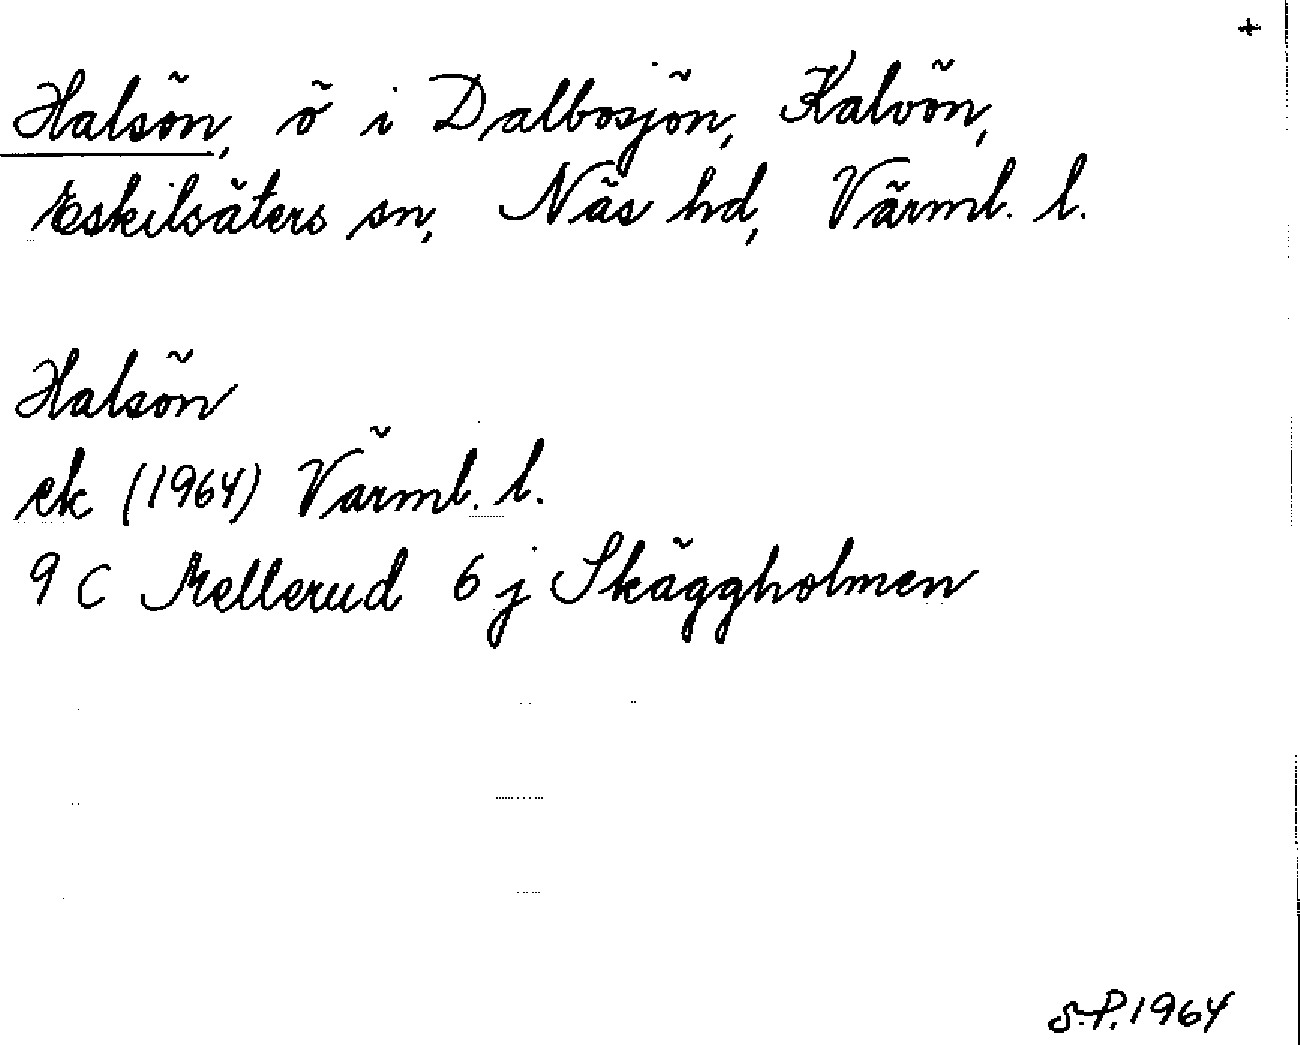 +
Halsön, ö i Dalbosjön, Kalvön,
Eskilsäters sn, Näs hd, Värml. l.
Halsön
ek (1964) Värml. l.
9 C Mellerud 6 j Skäggholmen
S.P. 1964